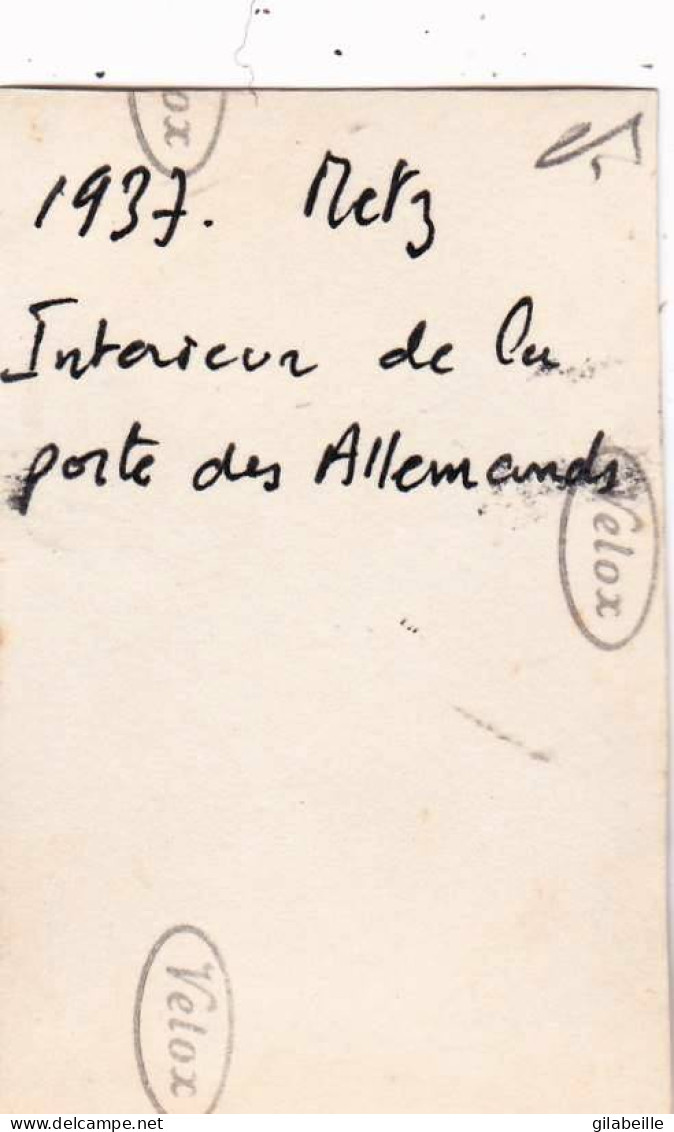 elox
1937. Metz
Interieur de la
porte des Allemands
Velox
Velox
delcampe.net
gilabeille